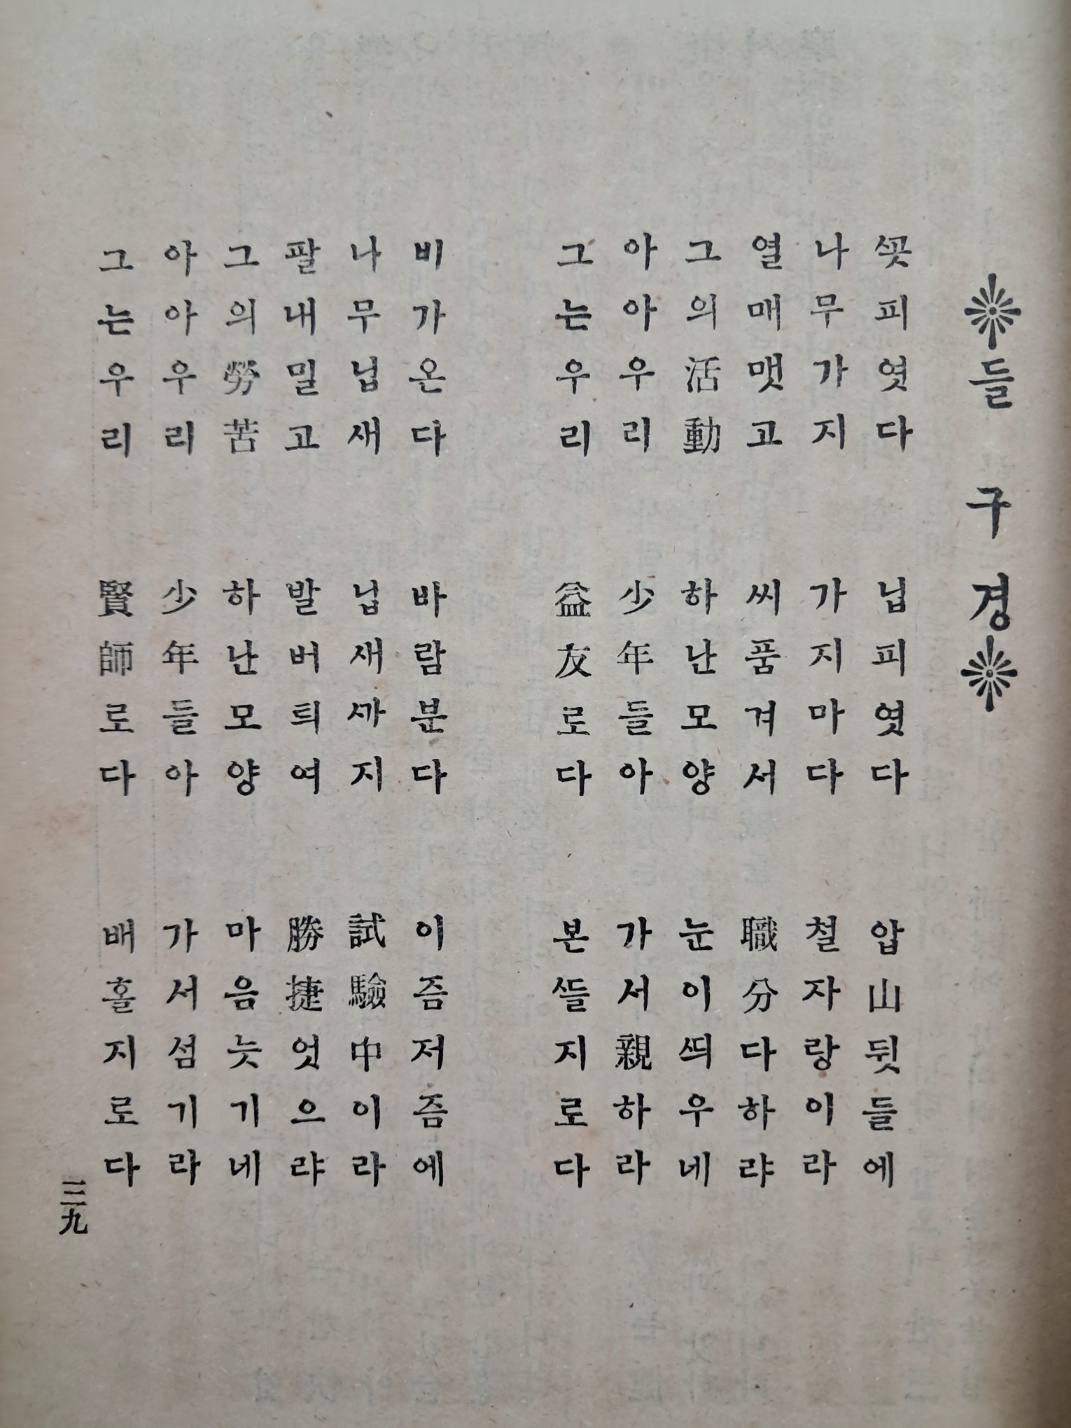 들구경
ᄭᅩᆺ피엿다 닙피엿다 압山뒷들에
나무가지 가지마다 철자랑이라
열매맷고 씨품겨서 職分다하랴
그의活動 하난모양 눈이ᄯᅴ우네
아아우리 少年들아 가서親하라
그는우리 益友로다 본ᄯᅳᆯ지로다
비가온다 바람분다 이즘저즘에
나무닙새 닙새ᄭᅡ지 試驗中이라
팔내밀고 발버틔여 勝捷엇으랴
그의勞苦 하난모양 마음늣기네
아아우리 少年들아 가서섬기라
그는우리 賢師로다 배홀지로다
三九